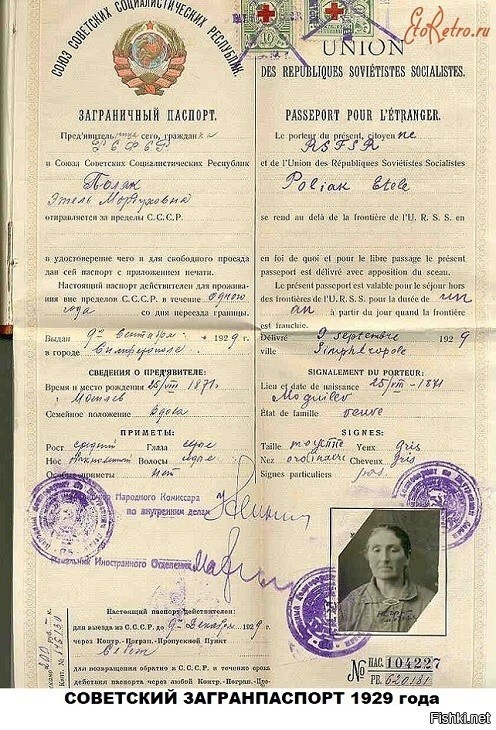 EtoRetro.ru
СОЮЗ СОВЕТСКИХ СОЦИАЛИСТИЧЕСКИХ РЕСПУБЛИК.
ЗАГРАНИЧНЫЙ ПАСПОРТ.
Пред'явительница сего, гражданка
РСФСР
и Союза Советских Социалистических Республик
Поляк
Этель Мордуховна
отправляется за пределы С.С.С.Р.
в удостоверение чего и для свободного проезда
дан сей паспорт с приложением печати.
Настоящий паспорт действителен для прожива-
ния вне пределов С.С.С.Р. в течение одного
года со дня переезда границы.
Выдан 9го Сентября 1929 г.
в городе Симферополе
СВЕДЕНИЯ О ПРЕД'ЯВИТЕЛЕ:
Время и место рождения 25/VIII 1871 г.
Могилев
Семейное положение вдова
ПРИМЕТЫ:
Рост средний Глаза серые
Нос Волосы седые
Особые приметы нет
Народного Комиссара
по внутренним делам
Начальник Иностранного Отделения
Настоящий паспорт действителен:
для выезда из С.С.С.Р. до 9го Декабря 1929 г.
через Контр.-Погран.-Пропускной Пункт
для возвращения обратно в С.С.С.Р. в течение срока
действия паспорта через любой Контр.-Погран.-Про-
UNION
DES REPUBLIQUES SOVIÉTISTES SOCIALISTES.
PASSEPORT POUR L'ÉTRANGER.
Le porteur du présent, citoyenne
RSFSR
et de l'Union des Républiques Soviétistes Socialistes
Poliak Etele
se rend au delà de la frontière de l'U.R.S.S. en
en foi de quoi et pour le libre passage le présent
passeport est délivré avec apposition du sceau.
Le présent passeport est valable pour le séjour hors
des frontières de l'U.R.S.S. pour la durée de un
an à partir du jour quand la frontière
est franchie.
Délivré 9 septembre 1929
ville Simphéropole
SIGNALEMENT DU PORTEUR:
Lieu et date de naissance 25/VIII-1871
Moguilev
État de famille veuve
SIGNES:
Taille moyenne Yeux gris
Nez ordinaire Cheveux gris
Signes particuliers pas
№ ПАС. 104227
PB. 620181
СОВЕТСКИЙ ЗАГРАНПАСПОРТ 1929 года
Fishki.net